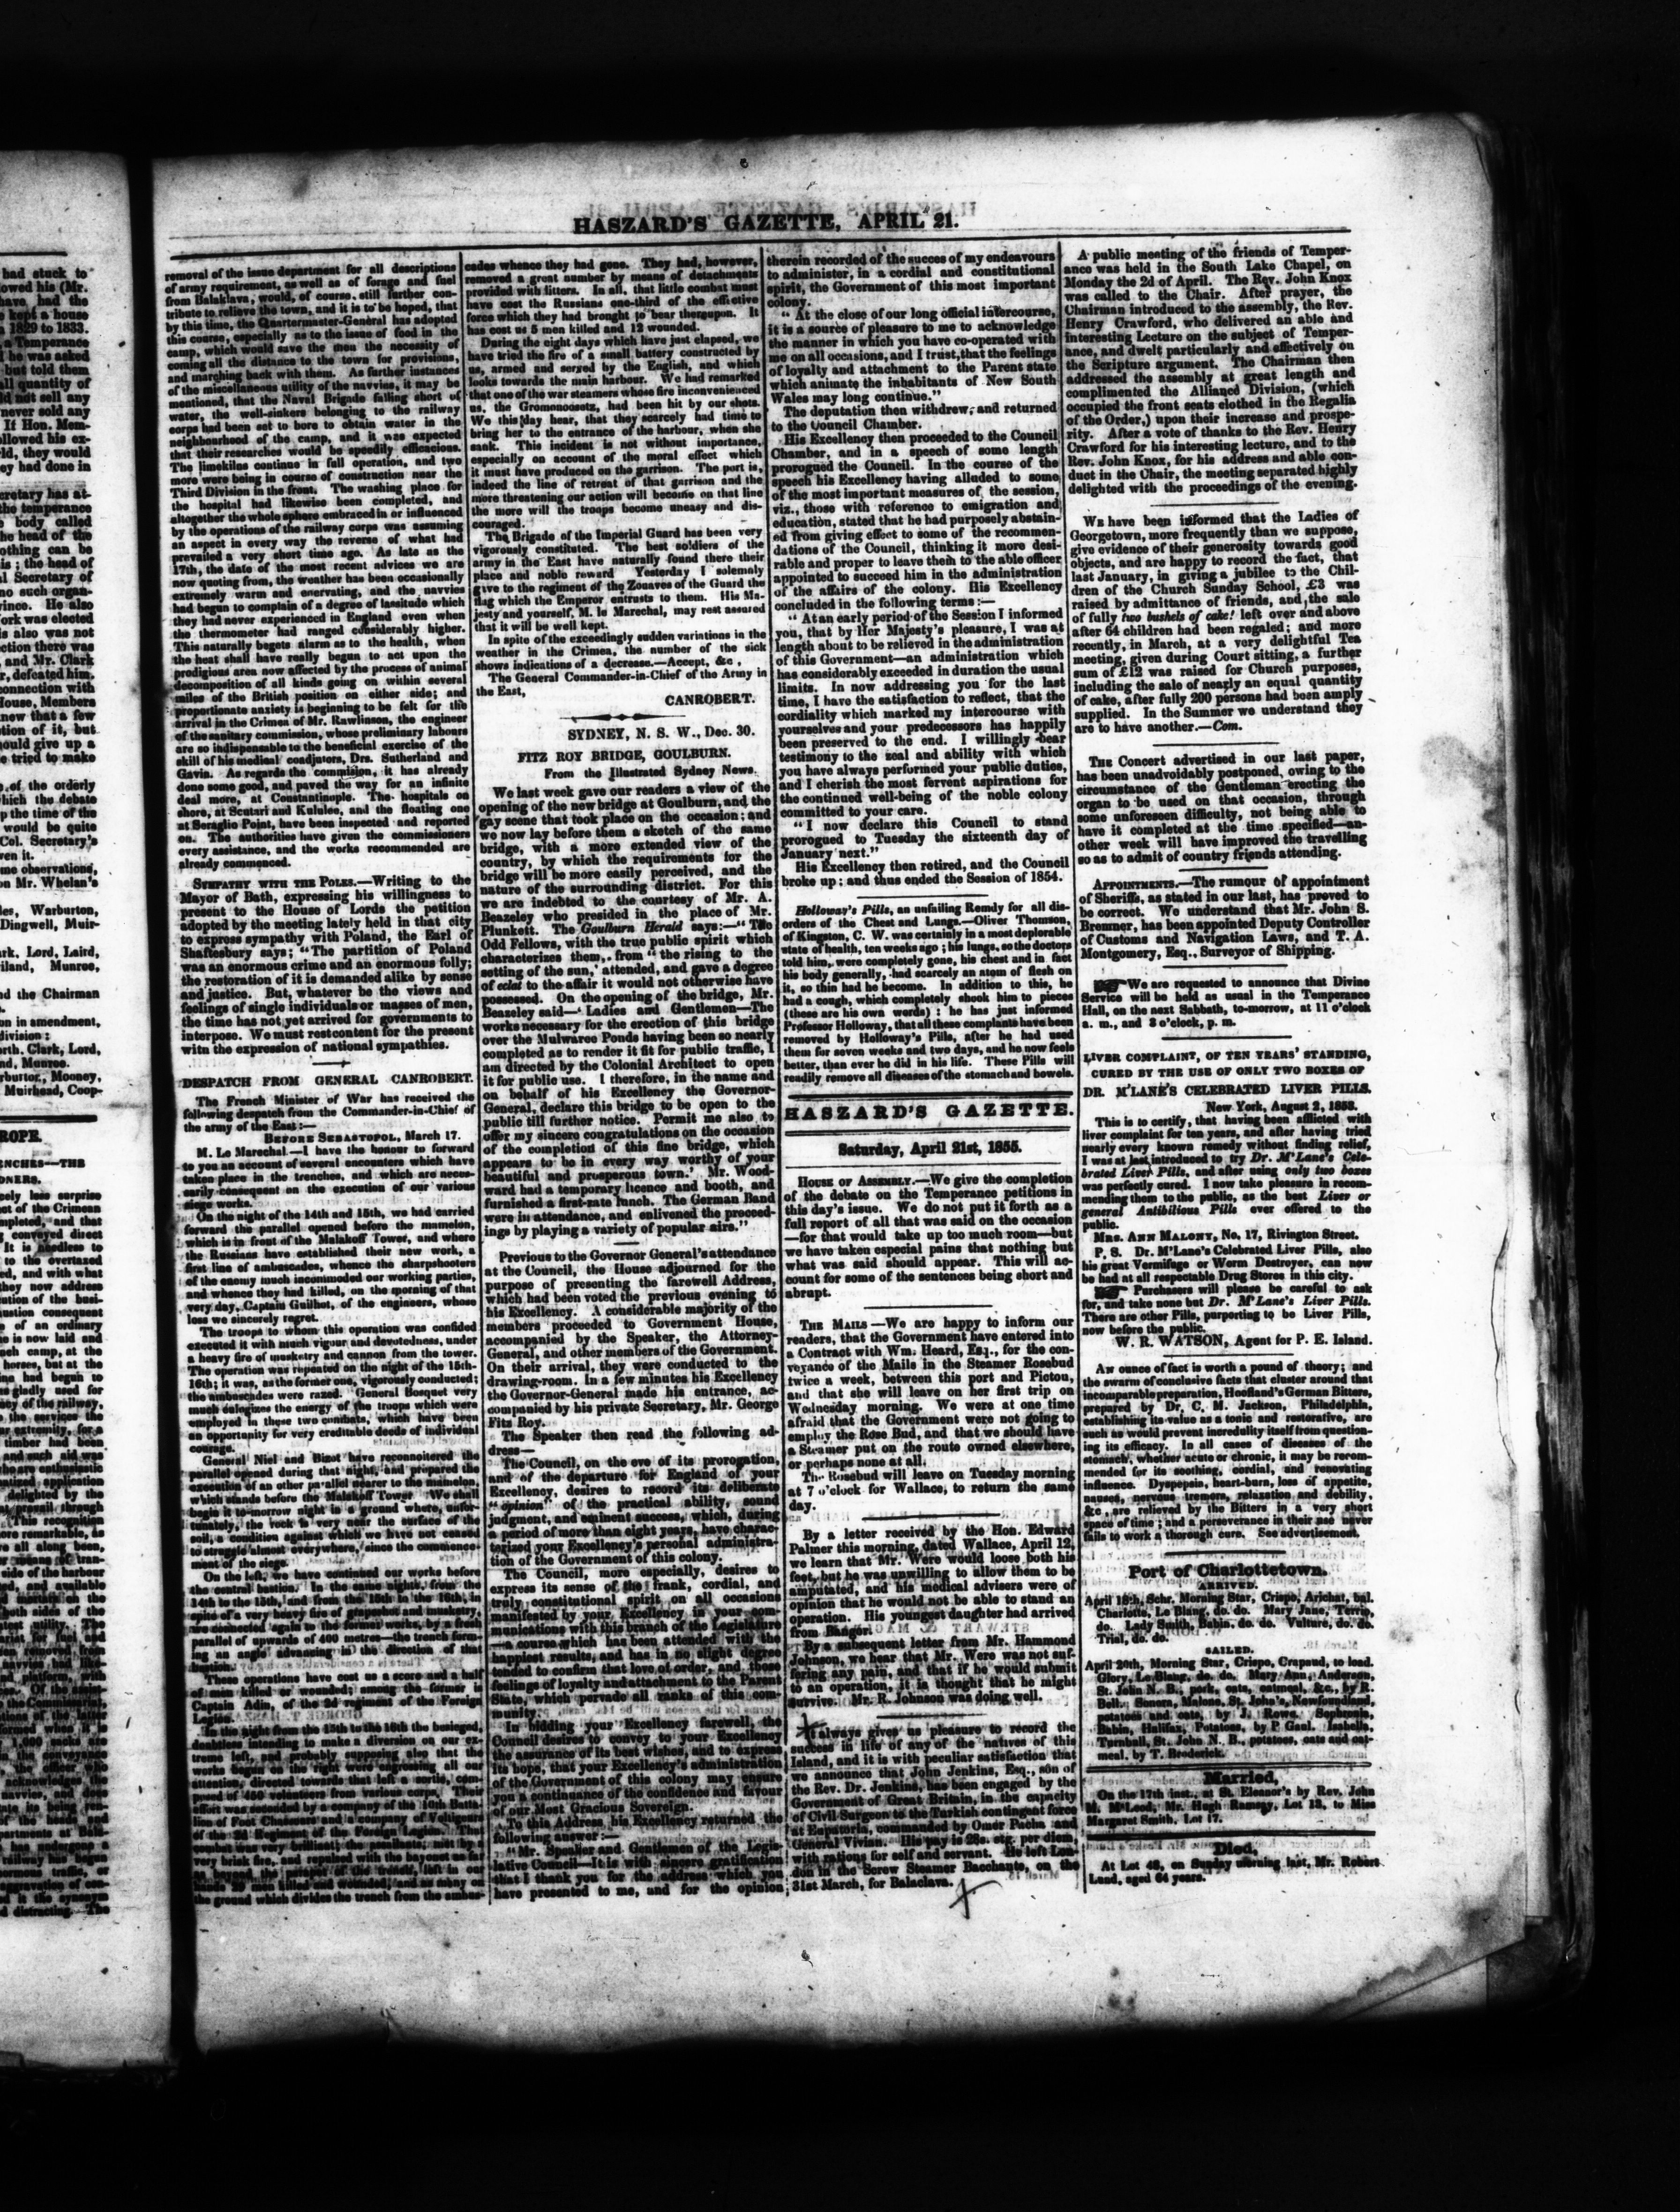 had stuck to
owed his (Mr.
have had the
kept a house
1829 to 1833.
a Temperance
he was asked
but told them
all quantity of
ld not sell any
never sold any
If Hon. Mem-
ollowed his ex-
ld, they would
ey had done in
cretary has at-
the temperance
body called
he head of the
othing can be
is ; the head of
al Secretary of
no such organ-
vince. He also
ork was elected
is also was not
ction there was
and Mr. Clark
r, defeated him.
connection with
House, Members
new that a few
tion of it, but
ould give up a
e tried to make
of the orderly
which the debate
p the time of the
would be quite
Col. Secretary's
ven it.
me observations,
on Mr. Whelan's
les, Warburton,
Dingwell, Muir-
ark, Lord, Laird,
iland, Munroe,
nd the Chairman
on in amendment,
division :
orth. Clark, Lord,
nd, Munroe.
rburton, Mooney,
Muirhead, Coop-
ROPE.
ENCHES—THE
ONERS.
HASZARD'S GAZETTE, APRIL 21.
removal of the issue department for all descriptions
of army requirement, as well as of forage and fuel
from Balaklava, would, of course, still further con-
tribute to relieve the town, and it is to be hoped, that
by this time, the Quartermaster-General has adopted
this course, especially as to the issue of food in the
camp, which would save the men the necessity of
coming all the distance to the town for provisions,
and marching back with them. As further instances
of the miscellaneous utility of the navvies, it may be
mentioned, that the Naval Brigade falling short of
water, the well-sinkers belonging to the railway
corps had been set to bore to obtain water in the
neighbourhood of the camp, and it was expected
that their researches would be speedily efficacious.
The limekilns continue in full operation, and two
more were being in course of construction near the
Third Division in the front. The washing place for
the hospital had likewise been completed, and
altogether the whole sphere embraced in or influenced
by the operations of the railway corps was assuming
an aspect in every way the reverse of what had
prevailed a very short time ago. As late as the
17th, the date of the most recent advices we are
now quoting from, the weather has been occasionally
extremely warm and enervating, and the navvies
had begun to complain of a degree of lassitude which
they had never experienced in England even when
the thermometer had ranged considerably higher.
This naturally begets alarm as to the health, when
the heat shall have really begun to act upon the
prodigious area now affected by the process of animal
decomposition of all kinds going on within several
miles of the British position on either side; and
proportionate anxiety is beginning to be felt for the
arrival in the Crimea of Mr. Rawlinson, the engineer
of the sanitary commission, whose preliminary labours
are so indispensable to the beneficial exercise of the
skill of his medical coadjutors, Drs. Sutherland and
Gavin. As regards the commision, it has already
done some good, and paved the way for an infinite
deal more, at Constantinople. The hospitals on
shore, at Scutari and Kululee, and the floating one
at Seraglio Point, have been inspected and reported
on. The authorities have given the commissioners
every assistance, and the works recommended are
already commenced.
SYMPATHY WITH THE POLES.—Writing to the
Mayor of Bath, expressing his willingness to
present to the House of Lords the petition
adopted by the meeting lately held in that city
to express sympathy with Poland, the Earl of
Shaftesbury says; "The partition of Poland
was an enormous crime and an enormous folly;
the restoration of it is demanded alike by sense
and justice. But, whatever be the views and
feelings of single individuals or masses of men,
the time has not yet arrived for governments to
interpose. We must rest content for the present
with the expression of national sympathies.
DESPATCH FROM GENERAL CANROBERT.
The French Minister of War has received the
following despatch from the Commander-in-Chief of
the army of the East:—
BEFORE SEBASTOPOL, March 17.
M. Le Marechal.—I have the honour to forward
to you an account of several encounters which have
taken place in the trenches, and which are neces-
sarily consequent on the execution of our various
siege works.
On the night of the 14th and 15th, we had carried
forward the parallel opened before the mamelon,
which is in front of the Malakoff Tower, and where
the Russians have established their new work, a
first line of ambuscades, whence the sharpshooters
of the enemy much incommoded our working parties,
and whence they had killed, on the morning of that
very day, Captain Guilhot, of the engineers, whose
loss we sincerely regret.
The troops to whom this operation was confided
executed it with much vigour and devotedness, under
a heavy fire of musketry and cannon from the tower.
The operation was repeated on the night of the 15th-
16th; it was, as the former one, vigorously conducted;
the ambuscades were razed. General Bosquet very
much eulogizes the energy of the troops which were
employed in these two combats, which have been
an opportunity for very creditable deeds of individual
courage.
General Niel and Bizot have reconnoitered the
parallel opened during that night, and prepared the
execution of an other parallel nearer to the mamelon,
which stands before the Malakoff Tower. We shall
begin it to-morrow night in a ground where, unfor-
tunately, the rock is very near the surface of the
soil, a condition against which we have not ceased
to struggle almost everywhere, since the commence-
ment of the siege.
On the left, we have continued our works before
the central bastion. In the same nights, from the
14th to the 15th, and from the 15th to the 16th, in
spite of a very heavy fire of grapeshot and musketry,
we connected again to the former works, by a fresh
parallel of upwards of 400 metres—the trench form-
ing an angle advancing in the direction of the
bastion.
These operations have cost us a score and a half
of men killed or wounded; among the former is
Captain Adin, of the 2d regiment of the Foreign
Legion.
In the night from the 15th to the 16th the besieged,
doubtless intending to make a diversion on our ex-
treme left, and probably supposing also that the
works begun on the right were engrossing all our
attention, directed towards that left a sortie, com-
posed of 450 volunteers from various corps. Their
effort was seconded by a company of the 10th Batta-
lion of Foot Chasseurs and a company of Voltigeurs
of the 2d Regiment of the Foreign Legion. The
combat was very brilliant; the assailants, met by a
very brisk fire, and repulsed with the bayonet as far
the ground which divides the trench from the ambus-
cades whence they had gone. They had, however,
removed a great number by means of detachments
provided with litters. In all, that little combat must
have cost the Russians one-third of the effective
force which they had brought to bear thereupon. It
has cost us 5 men killed and 12 wounded.
During the eight days which have just elapsed, we
have tried the fire of a small battery constructed by
us, armed and served by the English, and which
looks towards the main harbour. We had remarked
that one of the war steamers whose fire inconvenienced
us, the Gromonossetz, had been hit by our shots.
We this day hear, that they scarcely had time to
bring her to the entrance of the harbour, when she
sank. This incident is not without importance,
especially on account of the moral effect which
it must have produced on the garrison. The port is,
indeed the line of retreat of that garrison and the
more threatening our action will become on that line
the more will the troops become uneasy and dis-
couraged.
The Brigade of the Imperial Guard has been very
vigorously constituted. The best soldiers of the
army in the East have naturally found there their
place and noble reward Yesterday I solemnly
give to the regiment of the Zouaves of the Guard the
flag which the Emperor entrusts to them. His Ma-
jesty and yourself, M. le Marechal, may rest assured
that it will be well kept.
In spite of the exceedingly sudden variations in the
weather in the Crimea, the number of the sick
shows indications of a decrease.—Accept, &c ,
The General Commander-in-Chief of the Army in
the East,
CANROBERT.
SYDNEY, N. S. W., Dec. 30.
FITZ ROY BRIDGE, GOULBURN.
From the Illustrated Sydney News.
We last week gave our readers a view of the
opening of the new bridge at Goulburn, and, the
gay scene that took place on the occasion; and
we now lay before them a sketch of the same
bridge, with a more extended view of the
country, by which the requirements for the
bridge will be more easily perceived, and the
nature of the surrounding district. For this
we are indebted to the courtesy of Mr. A.
Beazeley who presided in the place of Mr.
Plunkett. The Goulburn Herald says:—"The
Odd Fellows, with the true public spirit which
characterizes them, from "the rising to the
setting of the sun,' attended, and gave a degree
of eclat to the affair it would not otherwise have
possessed. On the opening of the bridge, Mr.
Beazeley said—'Ladies and Gentlemen—The
works necessary for the erection of this bridge
over the Mulwaree Ponds having been so nearly
completed as to render it fit for public traffic, I
am directed by the Colonial Architect to open
it for public use. I therefore, in the name and
on behalf of his Excellency the Governor-
General, declare this bridge to be open to the
public till further notice. Permit me also to
offer my sincere congratulations on the occasion
of the completion of this fine bridge, which
appears to be in every way worthy of your
beautiful and prosperous town.' Mr. Wood-
ward had a temporary licence and booth, and
furnished a first-rate lunch. The German Band
were in attendance, and enlivened the proceed-
ings by playing a variety of popular airs."
Previous to the Governor General's attendance
at the Council, the House adjourned for the
purpose of presenting the farewell Address,
which had been voted the previous evening to
his Excellency. A considerable majority of the
members proceeded to Government House,
accompanied by the Speaker, the Attorney-
General, and other members of the Government.
On their arrival, they were conducted to the
drawing-room. In a few minutes his Excellency
the Governor-General made his entrance, ac-
companied by his private Secretary, Mr. George
Fitz Roy.
The Speaker then read the following ad-
dress—
The Council, on the eve of its prorogation,
and of the departure for England of your
Excellency, desires to record its deliberate
"opinion" of the practical ability, sound
judgment, and eminent success, which, during
a period of more than eight years, have charac-
terised your Excellency's personal administra-
tion of the Government of this colony.
The Council, more especially, desires to
express its sense of the frank, cordial, and
truly constitutional spirit on all occasions
manifested by your Excellency in your com-
munications with this branch of the Legislature
—a course which has been attended with the
happiest results, and has in no slight degree
tended to confirm that love of order, and those
feelings of loyalty and attachment to the Parent
State, which pervade all ranks of this com-
munity.
In bidding your Excellency farewell, the
Council desires to convey to your Excellency
the assurance of its best wishes, and to express
its hope, that your Excellency's administration
of the Government of this colony may ensure
you a continuance of the confidence and favour
of our Most Gracious Sovereign.
To this Address, his Excellency returned the
following answer:—
"Mr. Speaker and Gentlemen of the Legis-
lative Council—It is with sincere gratification
that I thank you for the address which you
have presented to me, and for the opinion
therein recorded of the succes of my endeavours
to administer, in a cordial and constitutional
spirit, the Government of this most important
colony.
"At the close of our long official intercourse,
it is a source of pleasure to me to acknowledge
the manner in which you have co-operated with
me on all occasions, and I trust, that the feelings
of loyalty and attachment to the Parent state
which animate the inhabitants of New South
Wales may long continue."
The deputation then withdrew, and returned
to the Council Chamber.
His Excellency then proceeded to the Council
Chamber, and in a speech of some length
prorogued the Council. In the course of the
speech his Excellency having alluded to some
of the most important measures of the session,
viz., those with reference to emigration and
education, stated that he had purposely abstain-
ed from giving effect to some of the recommen-
dations of the Council, thinking it more desi-
rable and proper to leave them to the able officer
appointed to succeed him in the administration
of the affairs of the colony. His Excellency
concluded in the following terms:—
"At an early period of the Session I informed
you, that by Her Majesty's pleasure, I was at
length about to be relieved in the administration
of this Government—an administration which
has considerably exceeded in duration the usual
limits. In now addressing you for the last
time, I have the satisfaction to reflect, that the
cordiality which marked my intercourse with
yourselves and your predecessors has happily
been preserved to the end. I willingly bear
testimony to the zeal and ability with which
you have always performed your public duties,
and I cherish the most fervent aspirations for
the continued well-being of the noble colony
committed to your care.
"I now declare this Council to stand
prorogued to Tuesday the sixteenth day of
January next."
His Excellency then retired, and the Council
broke up; and thus ended the Session of 1854.
Holloway's Pills, an unfailing Remdy for all dis-
orders of the Chest and Lungs.—Oliver Thomson,
of Kingston, C. W. was certainly in a most deplorable
state of health, ten weeks ago ; his lungs, so the doctors
told him, were completely gone, his chest and in fact
his body generally, had scarcely an atom of flesh on
it, so thin had he become. In addition to this, he
had a cough, which completely shook him to pieces
(these are his own words) : he has just informed
Professor Holloway, that all these complants have been
removed by Holloway's Pills, after he had used
them for seven weeks and two days, and he now feels
better, than ever he did in his life. These Pills will
readily remove all diseases of the stomach and bowels.
HASZARD'S GAZETTE.
Saturday, April 21st, 1855.
HOUSE OF ASSEMBLY.—We give the completion
of the debate on the Temperance petitions in
this day's issue. We do not put it forth as a
full report of all that was said on the occasion
—for that would take up too much room—but
we have taken especial pains that nothing but
what was said should appear. This will ac-
count for some of the sentences being short and
abrupt.
THE MAILS —We are happy to inform our
readers, that the Government have entered into
a Contract with Wm. Heard, Esq., for the con-
veyance of the Mails in the Steamer Rosebud
twice a week, between this port and Pictou,
and that she will leave on her first trip on
Wednesday morning. We were at one time
afraid that the Government were not going to
employ the Rose Bud, and that we should have
a Steamer put on the route owned elsewhere,
or perhaps none at all.
The Rosebud will leave on Tuesday morning
at 7 o'clock for Wallace, to return the same
day.
By a letter received by the Hon. Edward
Palmer this morning, dated Wallace, April 12,
we learn that Mr. Were would loose both his
feet, but he was unwilling to allow them to be
amputated, and his medical advisers were of
opinion that he would not be able to stand an
operation. His youngest daughter had arrived
from Bangor.
By a subsequent letter from Mr. Hammond
Johnson, we hear that Mr. Were was not suf-
fering any pain, and that if he would submit
to an operation, it is thought that he might
survive. Mr. R. Johnson was doing well.
It always gives us pleasure to record the
success in life of any of the natives of this
Island, and it is with peculiar satisfaction that
we announce that John Jenkins, Esq., son of
the Rev. Dr. Jenkins, has been engaged by the
Government of Great Britain, in the capacity
of Civil Surgeon to the Turkish contingent force
at Eupatoria, commanded by Omer Pacha and
General Vivian. His pay is 28s. stg. per diem,
with rations for self and servant. He left Lon-
don in the Screw Steamer Bacchante, on the
31st March, for Balaclava.
A public meeting of the friends of Temper-
ance was held in the South Lake Chapel, on
Monday the 2d of April. The Rev. John Knox
was called to the Chair. After prayer, the
Chairman introduced to the assembly, the Rev.
Henry Crawford, who delivered an able and
interesting Lecture on the subject of Temper-
ance, and dwelt particularly and effectively on
the Scripture argument. The Chairman then
addressed the assembly at great length and
complimented the Alliance Division, (which
occupied the front seats clothed in the Regalia
of the Order,) upon their increase and prospe-
rity. After a vote of thanks to the Rev. Henry
Crawford for his interesting lecture, and to the
Rev. John Knox, for his address and able con-
duct in the Chair, the meeting separated highly
delighted with the proceedings of the evening.
WE have been informed that the Ladies of
Georgetown, more frequently than we suppose,
give evidence of their generosity towards good
objects, and are happy to record the fact, that
last January, in giving a jubilee to the Chil-
dren of the Church Sunday School, £3 was
raised by admittance of friends, and the sale
of fully two bushels of cake! left over and above
after 64 children had been regaled; and more
recently, in March, at a very delightful Tea
meeting, given during Court sitting, a further
sum of £12 was raised for Church purposes,
including the sale of nearly an equal quantity
of cake, after fully 200 persons had been amply
supplied. In the Summer we understand they
are to have another.—Com.
THE Concert advertised in our last paper,
has been unavoidably postponed, owing to the
circumstance of the Gentleman erecting the
organ to be used on that occasion, through
some unforeseen difficulty, not being able to
have it completed at the time specified—an-
other week will have improved the travelling
so as to admit of country friends attending.
APPOINTMENTS.—The rumour of appointment
of Sheriffs, as stated in our last, has proved to
be correct. We understand that Mr. John S.
Bremner, has been appointed Deputy Controller
of Customs and Navigation Laws, and T. A.
Montgomery, Esq., Surveyor of Shipping.
We are requested to announce that Divine
Service will be held as usual in the Temperance
Hall, on the next Sabbath, to-morrow, at 11 o'clock
a. m., and 3 o'clock, p. m.
LIVER COMPLAINT, OF TEN YEARS' STANDING,
CURED BY THE USE OF ONLY TWO BOXES OF
DR. M'LANE'S CELEBRATED LIVER PILLS.
New York, August 2, 1853.
This is to certify, that having been afflicted with
liver complaint for ten years, and after having tried
nearly every known remedy without finding relief,
I was at last introduced to try Dr. M'Lane's Cele-
brated Liver Pills, and after using only two boxes
was perfectly cured. I now take pleasure in recom-
mending them to the public, as the best Liver or
general Antibilious Pills ever offered to the
public.
MRS. ANN MALONY, No. 17, Rivington Street.
P. S. Dr. M'Lane's Celebrated Liver Pills, also
his great Vermifuge or Worm Destroyer, can now
be had at all respectable Drug Stores in this city.
Purchasers will please be careful to ask
for, and take none but Dr. M'Lane's Liver Pills.
There are other Pills, purporting to be Liver Pills,
now before the public.
W. R. WATSON, Agent for P. E. Island.
AN ounce of fact is worth a pound of theory; and
the swarm of conclusive facts that cluster around that
incomparable preparation, Hoofland's German Bitters,
prepared by Dr. C. M. Jackson, Philadelphia,
establishing its value as a tonic and restorative, are
such as would prevent incredulity itself from question-
ing its efficacy. In all cases of diseases of the
stomach, whether acute or chronic, it may be recom-
mended for its soothing, cordial, and renovating
influence. Dyspepsia, heart-burn, loss of appetite,
nausea, nervous tremors, relaxation and debility,
&c , are relieved by the Bitters in a very short
space of time ; and a perseverance in their use never
fails to work a thorough cure. See advertisement.
Port of Charlottetown.
ARRIVED.
April 18th, Schr. Morning Star, Crispo, Arichat, bal.
Charlotte, Le Blang, do. do. Mary Jane, Terrio,
do. Lady Smith, Babin, do. do. Vulture, do. do.
Trial, do. do.
SAILED.
April 20th, Morning Star, Crispo, Crapaud, to load.
Glory, Le Blang, do. do. Mary Ann, Anderson,
St. John N. B., pork, oats, oatmeal, &c., by R.
Bell. Senora, Malone, St. John's, Newfoundland,
potatoes and oats, by J. Rowe. Sophronia,
Babin, Halifax, Potatoes, by P. Gaul. Isabella,
Turnbull, St. John N. B., potatoes, oats and oat-
meal, by T. Broderick.
Married,
On the 17th inst., at St. Eleanor's by Rev. John
M. M'Leod, Mr. Hugh Ramsey, Lot 13, to Miss
Margaret Smith, Lot 17.
Died,
At Lot 48, on Sunday morning last, Mr. Robert
Lund, aged 64 years.